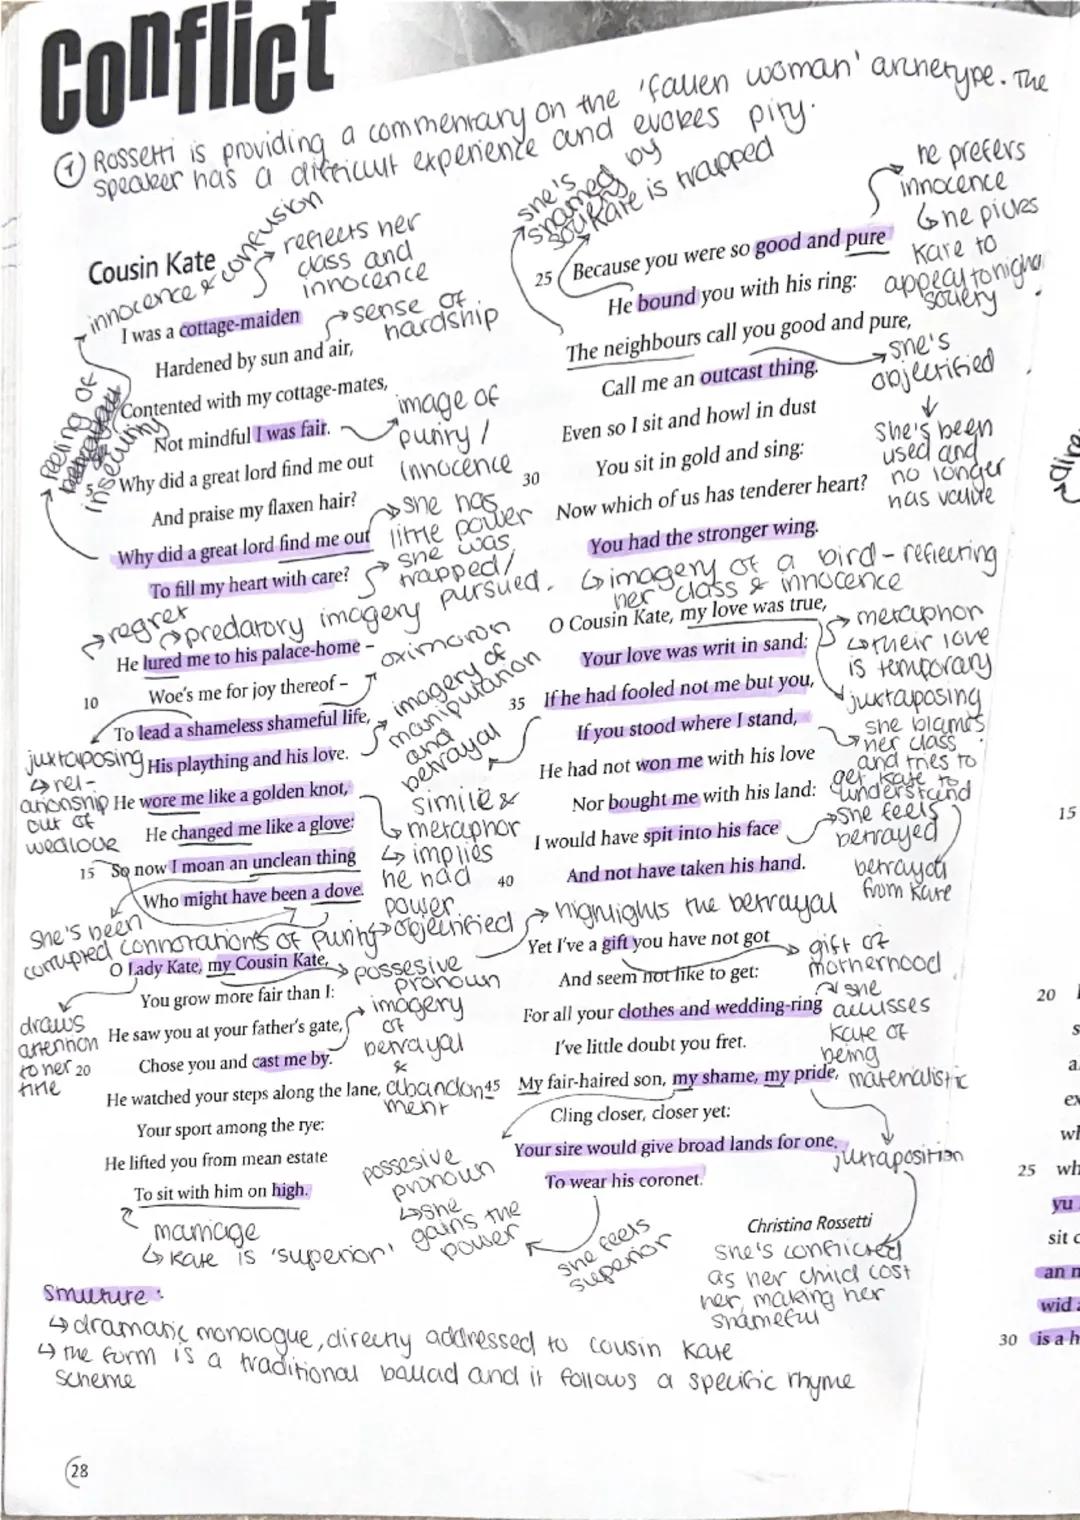 Conflict
① Rossetti is providing a commentary on the 'fallen woman' archetype. The
speaker has a difficult experience and evokes pity.
Cousin Kate
innocence & confusion
reflects her
class and
innocence
I was a cottage-maiden
sense of
hardship
Hardened by sun and air,
Contented with my cottage-mates,
Not mindful I was fair.
image of
purity /
innocence
feeling of
insecurity
5
Why did a great lord find me out
And praise my flaxen hair?
Why did a great lord find me out
To fill my heart with care?
she has
little power
she was
trapped/
pursued.
regret
predatory imagery
He lured me to his palace-home –
oximoron
10
Woe's me for joy thereof –
To lead a shameless shameful life,
His plaything and his love.
imagery of
manipulation
and
betrayal
juxtaposing
↳ rel-
ationship
out of
wedlock
He wore me like a golden knot,
He changed me like a glove:
simile &
metaphor
↳ implies
he had
power
objectified
15
So now I moan an unclean thing
Who might have been a dove.
She's been
corrupted
connotations of purity
O Lady Kate, my Cousin Kate,
possesive
pronoun
You grow more fair than I:
He saw you at your father's gate,
imagery
of
betrayal
&
abandon
ment
draws
attention
to her
title
20
Chose you and cast me by.
He watched your steps along the lane,
Your sport among the rye:
He lifted you from mean estate
To sit with him on high.
marriage
↳ Kate is 'superior'
possesive
pronoun
↳ she
gains the
power
she's
shamed by
society
Kate is trapped
he prefers
innocence
↳ he picks
Kate to
appeal to higher
society
25
Because you were so good and pure
He bound you with his ring:
The neighbours call you good and pure,
Call me an outcast thing.
she's
objectified
She's been
used and
no longer
has value
Even so I sit and howl in dust
30
You sit in gold and sing:
Now which of us has tenderer heart?
You had the stronger wing.
↳ imagery of a bird – reflecting
her class & innocence
O Cousin Kate, my love was true,
Your love was writ in sand:
metaphor
↳ their love
is temporary
juxtaposing
35
If he had fooled not me but you,
If you stood where I stand,
she blames
her class
and tries to
get Kate to
understand
He had not won me with his love
Nor bought me with his land:
I would have spit into his face
she feels
betrayed
40
And not have taken his hand.
betrayed
from Kate
highlights the betrayal
Yet I've a gift you have not got
And seem not like to get:
gift of
motherhood
For all your clothes and wedding-ring
I've little doubt you fret.
she
accusses
Kate of
being
materialistic
45
My fair-haired son, my shame, my pride,
Cling closer, closer yet:
Your sire would give broad lands for one,
juxtaposition
To wear his coronet.
she feels
superior
Christina Rossetti
She's conflicted
as her child cost
her, making her
shameful
Structure:
↳ dramatic monologue, directly addressed to cousin Kate
↳ the form is a traditional ballad and it follows a specific rhyme
scheme
28
15
20
25
wh
yu
sit
an
wid
30
is a h